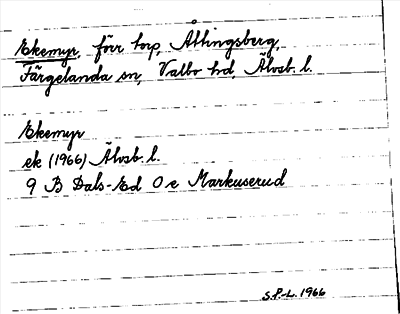 Ekemyr, förr torp, Allingsberg,
Färgelanda sn, Valbo hd, Älvsb. l.
Ekemyr
ek (1966) Älvsb. l.
9 B Dals-Ed O e Markuserud
S.P.-L. 1966